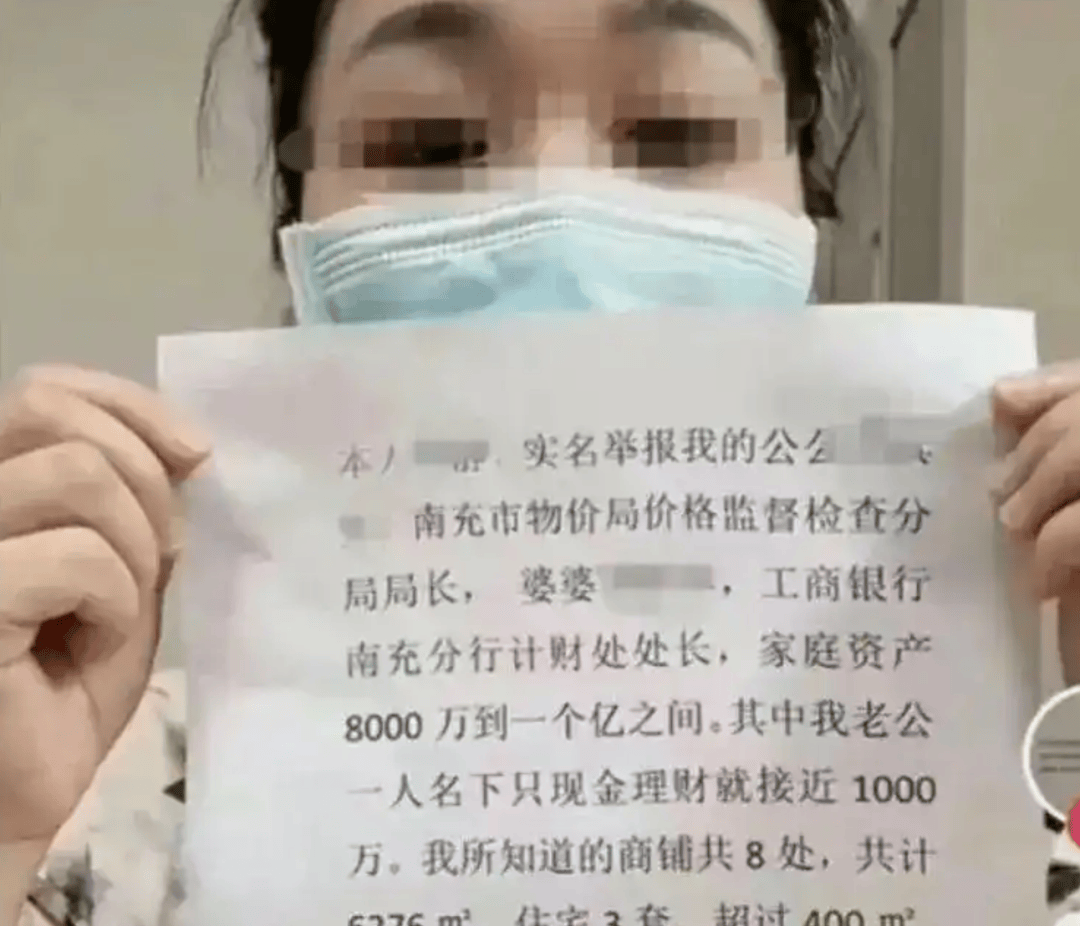 本人 实名举报我的公公
南充市物价局价格监督检查分
局局长， 婆婆 ，工商银行
南充分行计财处处长，家庭资产
8000 万到一个亿之间。其中我老公
一人名下只现金理财就接近 1000
万。我所知道的商铺共 8 处，共计
6276 ㎡，住宅 3 套，超过 400 ㎡，